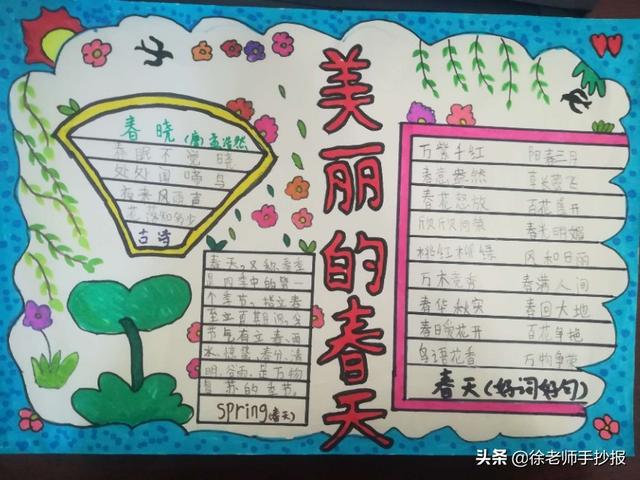 美丽的春天
春晓(唐)孟浩然
春眠不觉晓
处处闻啼鸟
夜来风雨声
花落知多少
古诗
春天,又称春季
是四季中的第一
个季节,指立春
至立夏期间,含
节气有立春、雨
水、惊蛰、春分、清
明、谷雨,是万物
复苏的季节.
spring(春天)
万紫千红 阳春三月
春意盎然 草长莺飞
春花怒放 百花盛开
欣欣向荣 春光明媚
桃红柳绿 风和日丽
万木竞秀 春满人间
春华秋实 春回大地
春日暖花开 百花争艳
鸟语花香
春天(好词好句)
头条 @徐老师手抄报